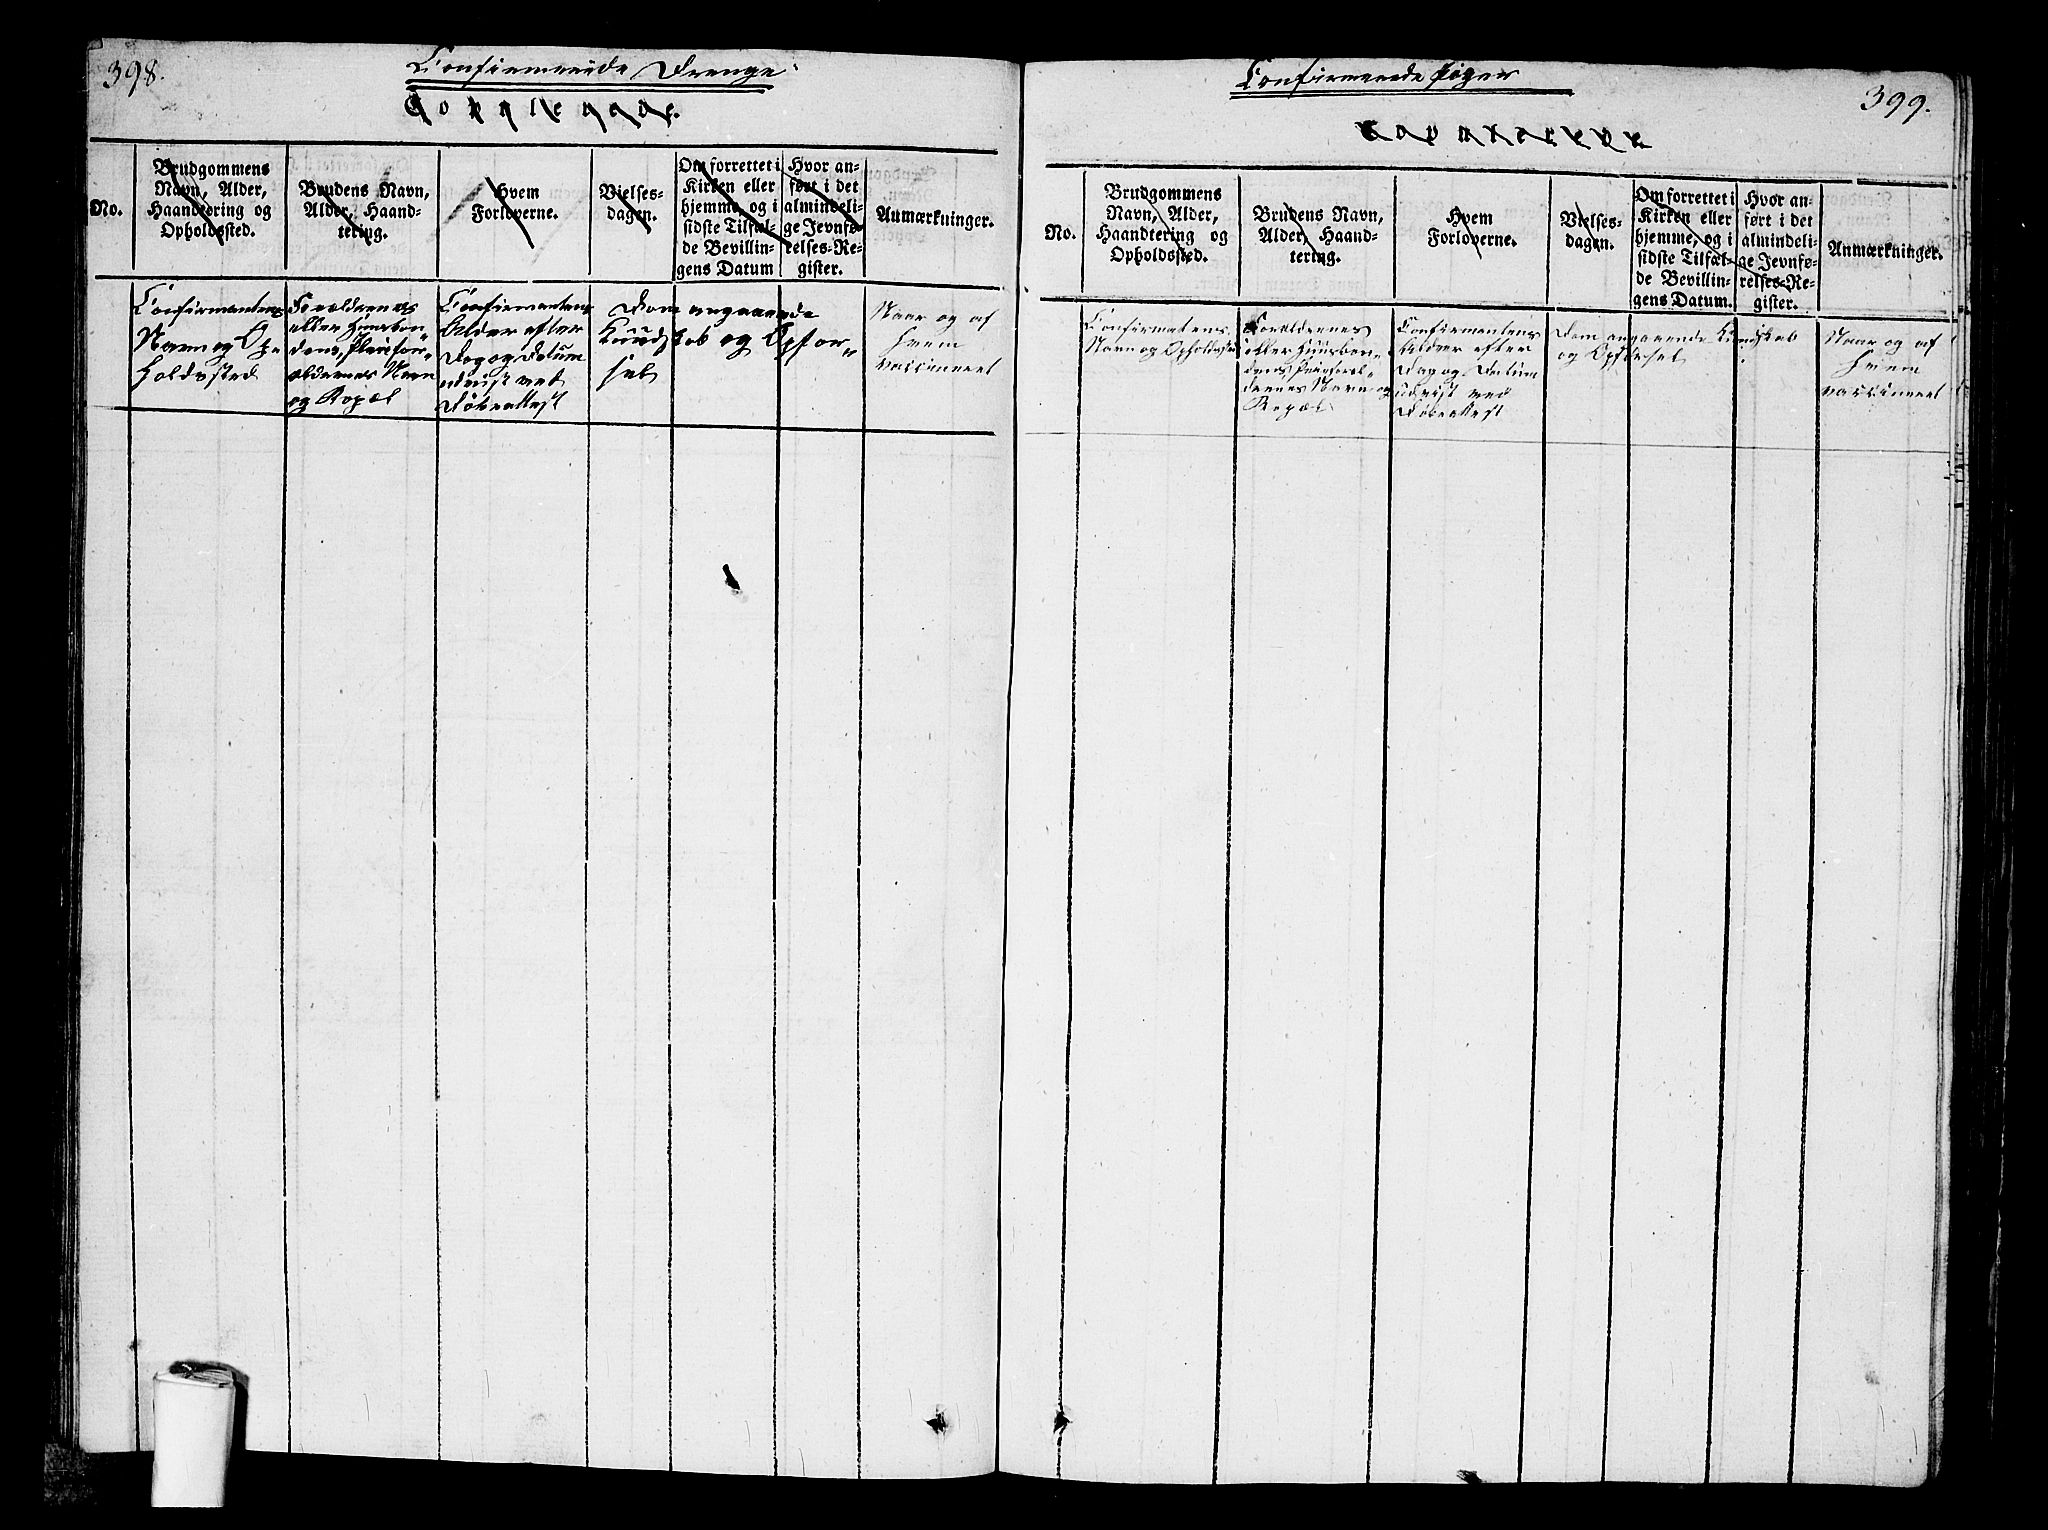 398.
Confirmerede Drenge
Copulerede.
No.
Brudgommens
Navn, Alder,
Haandtering og
Opholdssted.
Brudens Navn,
Alder, Haand-
tering.
Hvem
Forloverne.
Vielses-
dagen.
Om forrettet i
Kirken eller
hjemme, og i
sidste Tilfæl-
de Bevillin-
gens Datum
Hvor an-
ført i det
almindeli-
ge Jevnfø-
relses-Re-
gister.
Anmærkninger.
Confirmantens
Navn og Op-
holdssted
Forældrenes
eller Huusbon-
dens, Pleiefor-
ældrenes Navn
og Bopæl
Confirmantens
Alder efter
Dag og Datum
udviist ved
Døbeattest
Dom angaaende
Kundskab og Opfør-
sel
Naar og af
hvem
vaccineret
Confirmerede Piger
399.
Copulerede
No.
Brudgommens
Navn, Alder,
Haandtering og
Opholdssted.
Brudens Navn,
Alder, Haand-
tering.
Hvem
Forloverne.
Vielses-
dagen.
Om forrettet i
Kirken eller
hjemme, og i
sidste Tilfæl-
de Bevillin-
gens Datum.
Hvor an-
ført i det
almindeli-
ge Jevnfø-
relses-Re-
gister.
Anmærkninger.
Confirmatens
Navn og Opholdssted
Forældrenes
eller Huusbon-
dens, Pleieforæl-
drenes Navn og
Bopæl
Confirmantens
Alder efter
Dag og Datum
udviist ved
Døbeattest
Dom angaaende Kundskab
og Opførsel
Naar og af
hvem
vaccineret